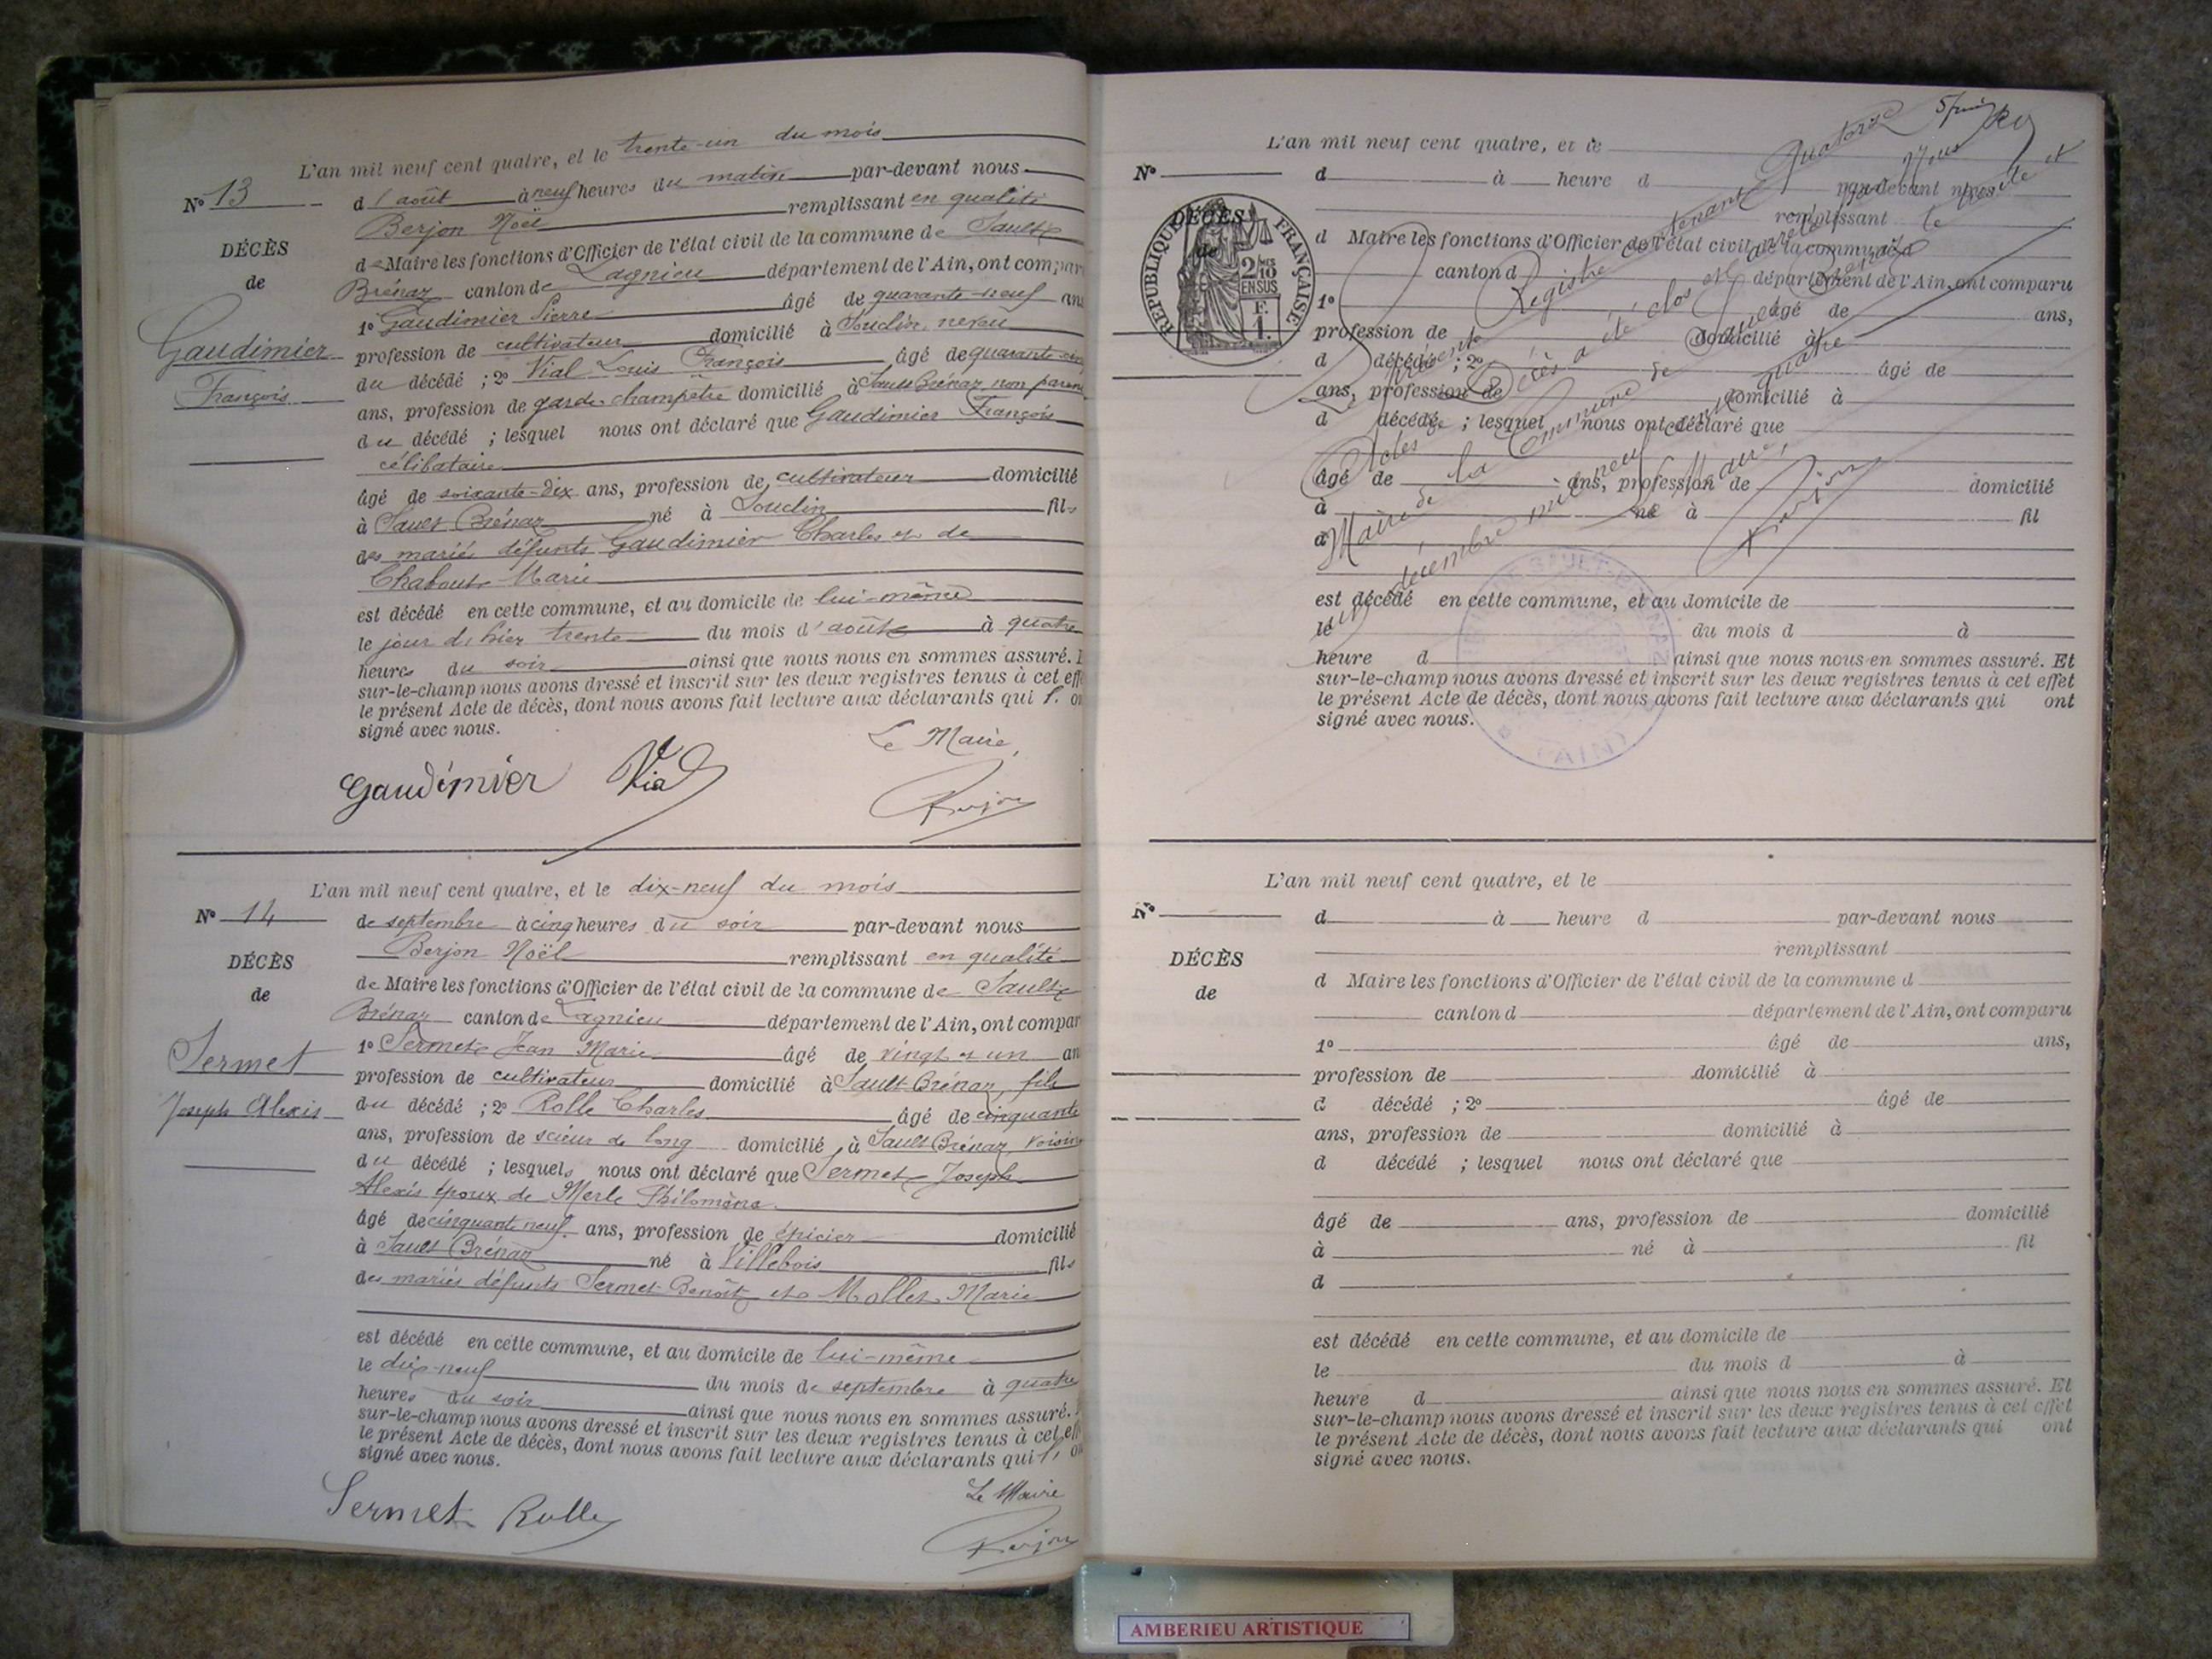 L'an mil neuf cent quatre, et le trente-un du mois
Nº 13 d'août à neuf heures du matin par-devant nous
Berjon Noël remplissant en qualité
DÉCÈS
de Maire les fonctions d'Officier de l'état civil de la commune de Sault
de
Brénaz canton de Lagnieu département de l'Ain, ont compar
1º Gaudimier Pierre âgé de quarante-neuf ans
Gaudimier
profession de cultivateur domicilié à Souclin, neveu
du décédé ; 2º Vial Louis François âgé de quarante-cinq
François
ans, profession de garde-champêtre domicilié à Sault Brénaz, non parent
du décédé ; lesquel nous ont déclaré que Gaudimier François
célibataire
âgé de soixante-dix ans, profession de cultivateur domicilié
à Sault Brénaz né à Souclin fils
des mariés défunts Gaudimier Charles et de
Chaboux Marie
est décédé en cette commune, et au domicile de lui-même
le jour d'hier trente du mois d'août à quatre
heures du soir ainsi que nous nous en sommes assuré.
sur-le-champ nous avons dressé et inscrit sur les deux registres tenus à cet eff
le présent Acte de décès, dont nous avons fait lecture aux déclarants qui l' on
signé avec nous.
Le Maire,
Gaudimier Vial Berjon
L'an mil neuf cent quatre, et le dix-neuf du mois
Nº 14 de septembre à cinq heures du soir par-devant nous
Berjon Noël remplissant en qualité
DÉCÈS
de Maire les fonctions d'Officier de l'état civil de la commune de Sault
de
Brénaz canton de Lagnieu département de l'Ain, ont compar
1º Sermet Jean Marie âgé de vingt et un an
Sermet
profession de cultivateur domicilié à Sault Brénaz, fils
Joseph Alexis
du décédé ; 2º Rolle Charles âgé de cinquante
ans, profession de scieur de long domicilié à Sault Brénaz, voisin
du décédé ; lesquels nous ont déclaré que Sermet Joseph
Alexis époux de Merle Philomène
âgé de cinquante neuf ans, profession de épicier domicilié
à Sault Brénaz né à Villebois fils
des mariés défunts Sermet Benoît et Mollet Marie
est décédé en cette commune, et au domicile de lui-même
le dix-neuf du mois de septembre à quatre
heures du soir ainsi que nous nous en sommes assuré.
sur-le-champ nous avons dressé et inscrit sur les deux registres tenus à cet eff
le présent Acte de décès, dont nous avons fait lecture aux déclarants qui l' on
signé avec nous.
Le Maire
Sermet Rolle Berjon
L'an mil neuf cent quatre, et le
Nº d à heure d par-devant nous
remplissant
DÉCÈS
de
d Maire les fonctions d'Officier de l'état civil de la commune d
canton d département de l'Ain, ont comparu
1º âgé de ans,
profession de domicilié à
d décédé ; 2º âgé de
ans, profession de domicilié à
d décédé ; lesquel nous ont déclaré que
âgé de ans, profession de domicilié
à né à fil
d
est décédé en cette commune, et au domicile de
le du mois d à
heure d ainsi que nous nous en sommes assuré. Et
sur-le-champ nous avons dressé et inscrit sur les deux registres tenus à cet effet
le présent Acte de décès, dont nous avons fait lecture aux déclarants qui ont
signé avec nous.
RÉPUBLIQUE FRANÇAISE
2/10 MES EN SUS
F. 1.
Le présent Registre contenant Quatorze
Actes de Décès a été clos et arrêté par Nous
Maire de la Commune de Sault Brénaz le trente et
un décembre mil neuf cent quatre
Le Maire,
Berjon
L'an mil neuf cent quatre, et le
Nº d à heure d par-devant nous
remplissant
DÉCÈS
d Maire les fonctions d'Officier de l'état civil de la commune d
de
canton d département de l'Ain, ont comparu
1º âgé de ans,
profession de domicilié à
d décédé ; 2º âgé de
ans, profession de domicilié à
d décédé ; lesquel nous ont déclaré que
âgé de ans, profession de domicilié
à né à fil
d
est décédé en cette commune, et au domicile de
le du mois d à
heure d ainsi que nous nous en sommes assuré. Et
sur-le-champ nous avons dressé et inscrit sur les deux registres tenus à cet effet
le présent Acte de décès, dont nous avons fait lecture aux déclarants qui ont
signé avec nous.
AMBERIEU ARTISTIQUE